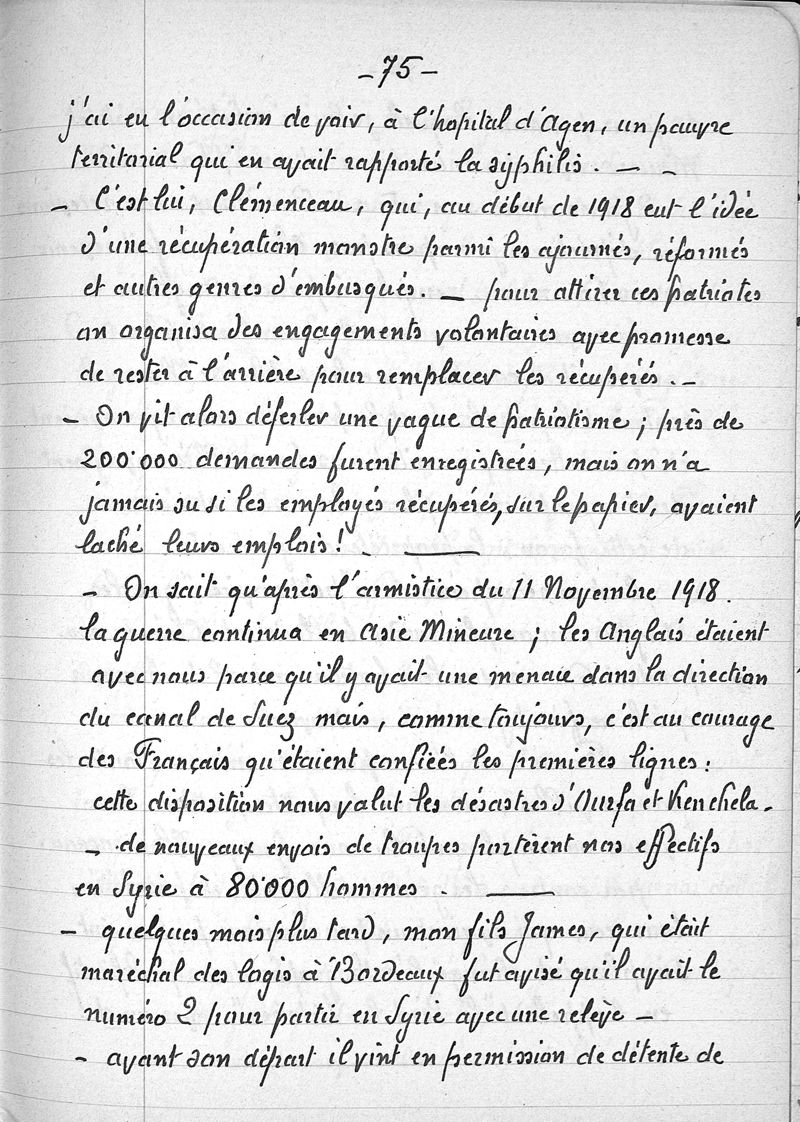 - 75 -
j'ai eu l'occasion de voir, à l'hopital d'Agen, un pauvre
territorial qui en avait rapporté la syphilis. — -
- C'est lui, Clémenceau, qui, au début de 1918 eut l'idée
d'une récupération monstre parmi les ajournés, réformés
et autres genres d'embusqués. — pour attirer ces patriotes
on organisa des engagements volontaires avec promesse
de rester à l'arrière pour remplacer les récupérés. -
- On vit alors déferler une vague de patriotisme ; près de
200'000 demandes furent enregistrées, mais on n'a
jamais su si les employés récupérés, sur le papier, avaient
laché leurs emplois ! - ———
- On sait qu'après l'armistice du 11 Novembre 1918.
la guerre continua en Asie Mineure ; les Anglais étaient
avec nous parce qu'il y avait une menace dans la direction
du canal de Suez mais, comme toujours, c'est au courage
des Français qu'étaient confiées les premières lignes :
cette disposition nous valut les désastres d'Ourfa et Kenchela -
- de nouveaux envois de troupes portèrent nos effectifs
en Syrie à 80'000 hommes . ———
- quelques mois plus tard, mon fils James, qui était
maréchal des logis à Bordeaux fut avisé qu'il avait le
numéro 2 pour partir en Syrie avec une relève -
- avant son départ il vint en permission de détente de